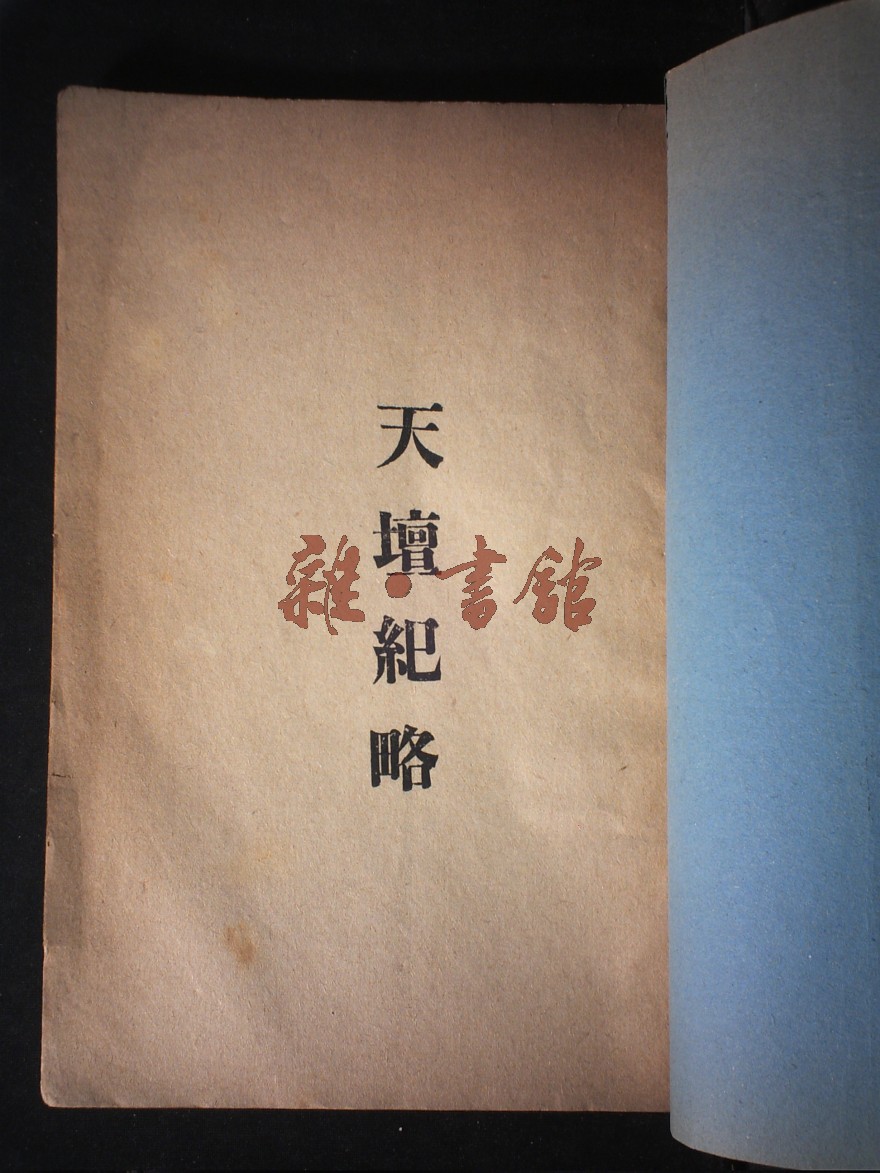 天壇紀略
雜·書館